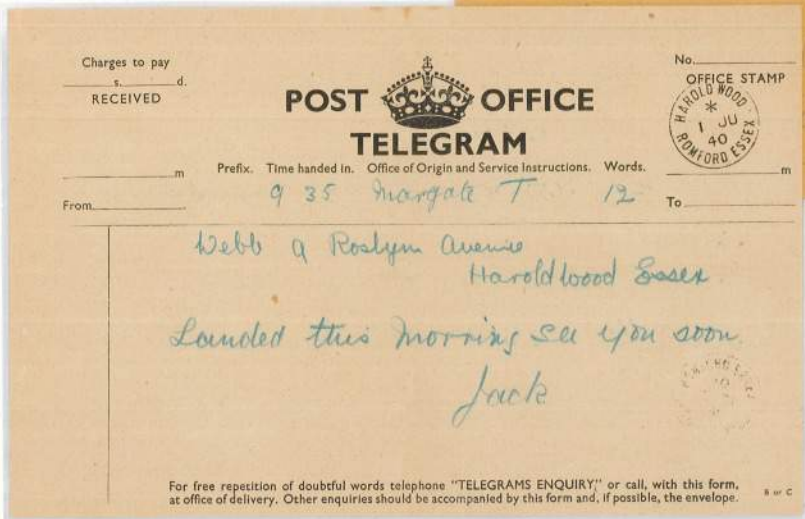 Charges to pay
s. d.
RECEIVED
POST OFFICE
TELEGRAM
No.
OFFICE STAMP
HAROLD WOOD
*
1 JU
40
ROMFORD ESSEX
Prefix. Time handed in. Office of Origin and Service Instructions. Words.
m
m
9 35 Margate T 12
From
To
Webb 9 Roslyn Avenue
Haroldwood Essex
Landed this morning see you soon
Jack
For free repetition of doubtful words telephone "TELEGRAMS ENQUIRY," or call, with this form,
at office of delivery. Other enquiries should be accompanied by this form and, if possible, the envelope.
B or C